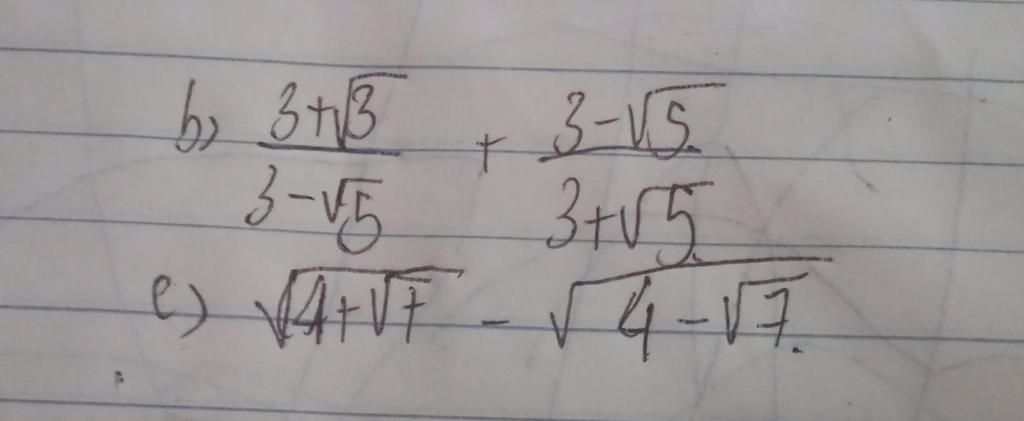 b) \frac{3+\sqrt{3}}{3-\sqrt{5}} + \frac{3-\sqrt{5}}{3+\sqrt{5}}
c) \sqrt{4+\sqrt{7}} - \sqrt{4-\sqrt{7}}.